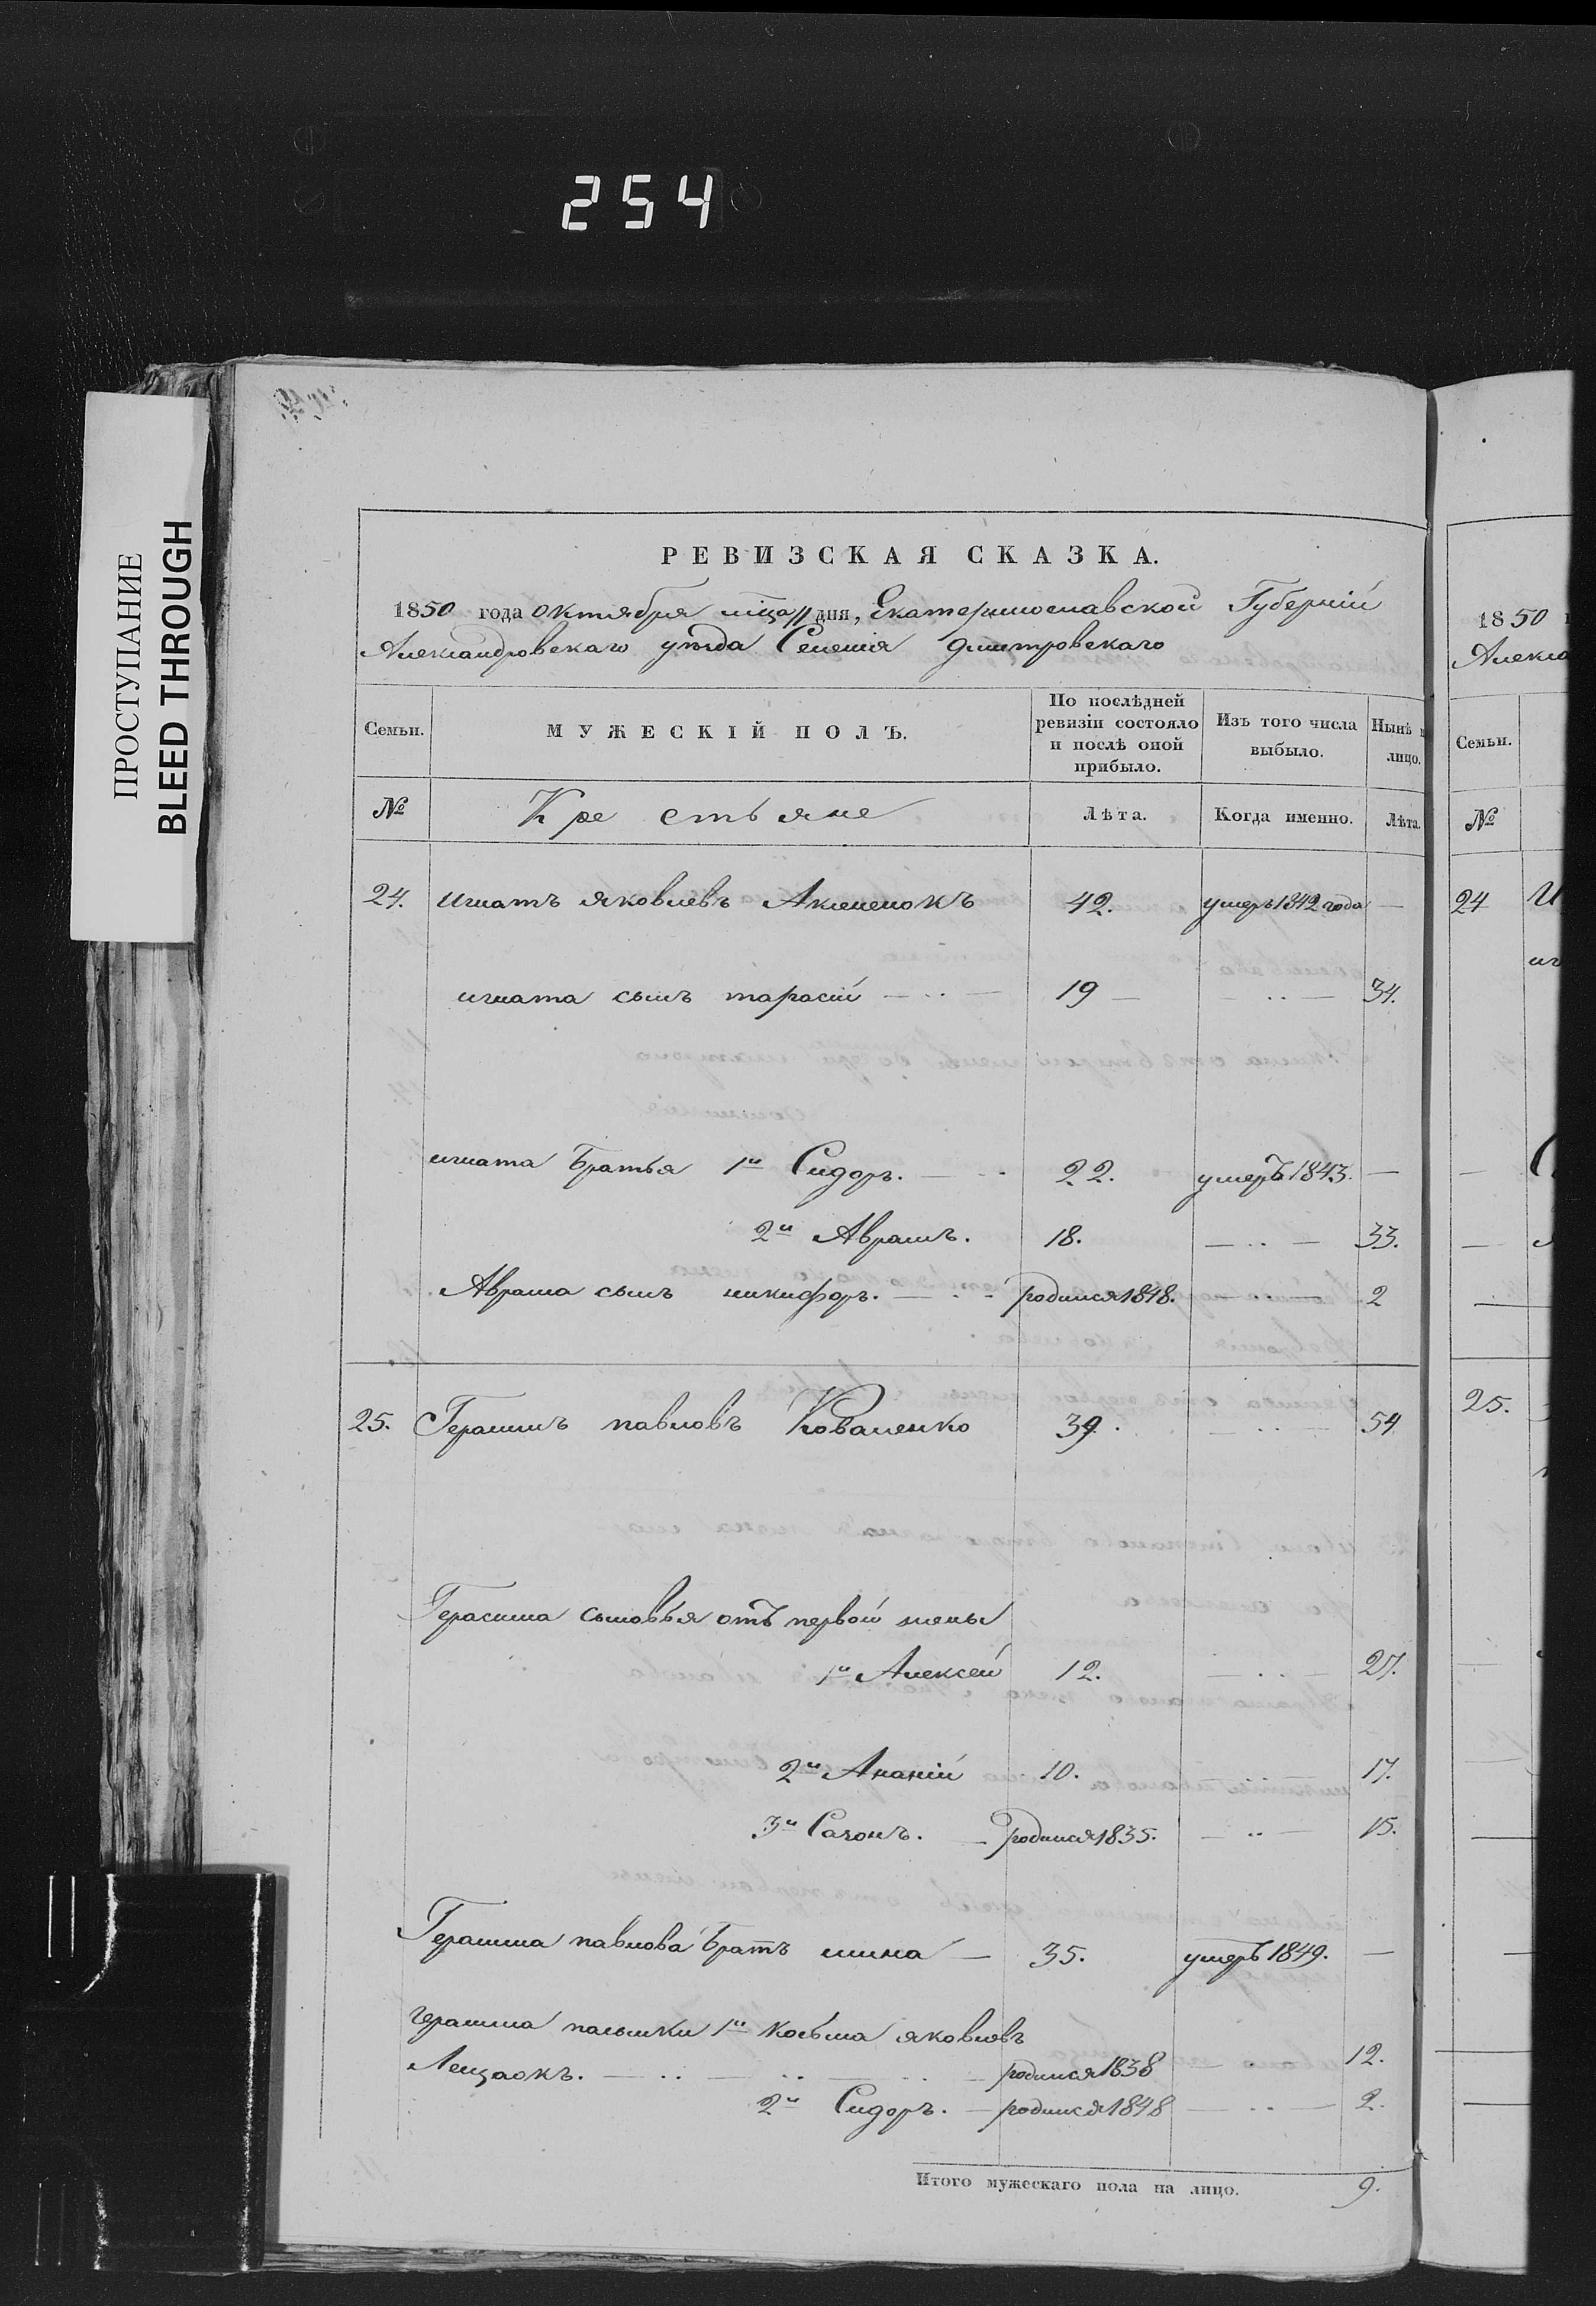 254
ПРОСТУПАНИЕ
BLEED THROUGH
РЕВИЗСКАЯ СКАЗКА.
1850 года октября мца 11 дня, Екатеринославской Губерніи
Александровскаго уѣзда Селенія Дмитровскаго
Семьи. МУЖЕСКІЙ ПОЛЪ. По послѣдней ревизіи состояло и послѣ оной прибыло. Изъ того числа выбыло. Нынѣ лицо.
№ Крестьяне Лѣта. Когда именно. Лѣта.
24. Игнатъ яковлевъ 42. умеръ 1842 года —
игната сынъ тарасій 19 34.
игната братья 1й Сидоръ. 22. умеръ 1843. —
2й Аврамъ. 18. 33.
Аврама сынъ никифоръ. родился 1848. 2
25. Герасимъ павловъ Коваленко 39. 54
Герасима сыновья отъ первой жены
1й Алексей 12. 27.
2й Ананій 10. 17.
3й Сазонъ. родился 1835. 15.
Герасима павлова братъ мина — 35. умеръ 1849. —
герасима пасынки 1й косьма яковлевъ
родился 1838 12.
2й Сидоръ. родился 1848 2.
Итого мужескаго пола на лицо. 9.
1850
Семьи.
№
24
25.